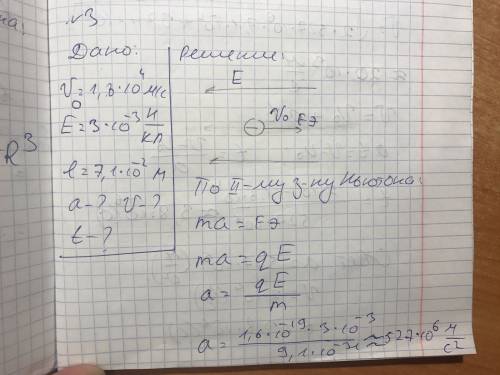 на.
√3
Дано:
V₀ = 1,3·10⁴ м/с
E = 3·10⁻³ Н/кл
l = 7,1·10⁻² м
a - ? V - ?
t - ?
R³
Решение:
E
V₀ Fэ
−
По II-му з-ну Ньютона:
ma = Fэ
ma = qE
a = qE/m
a = 1,6·10⁻¹⁹·3·10⁻³/9,1·10⁻³¹ ≈ 527·10⁶ м/с²